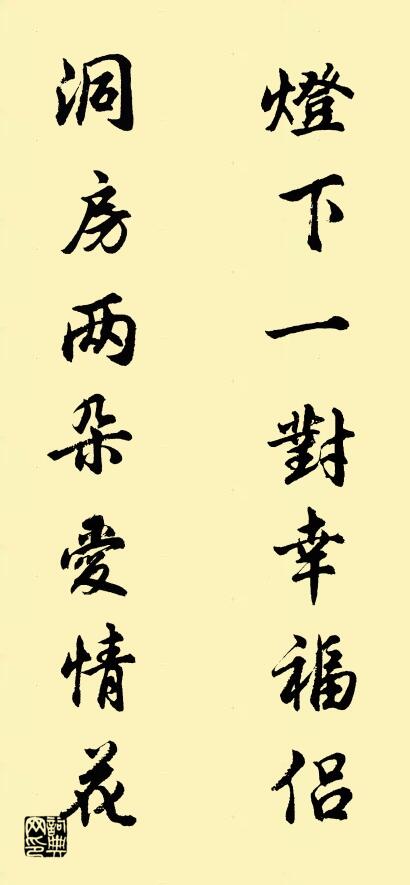 燈下一對幸福侣
洞房两朵愛情花
詞典网印